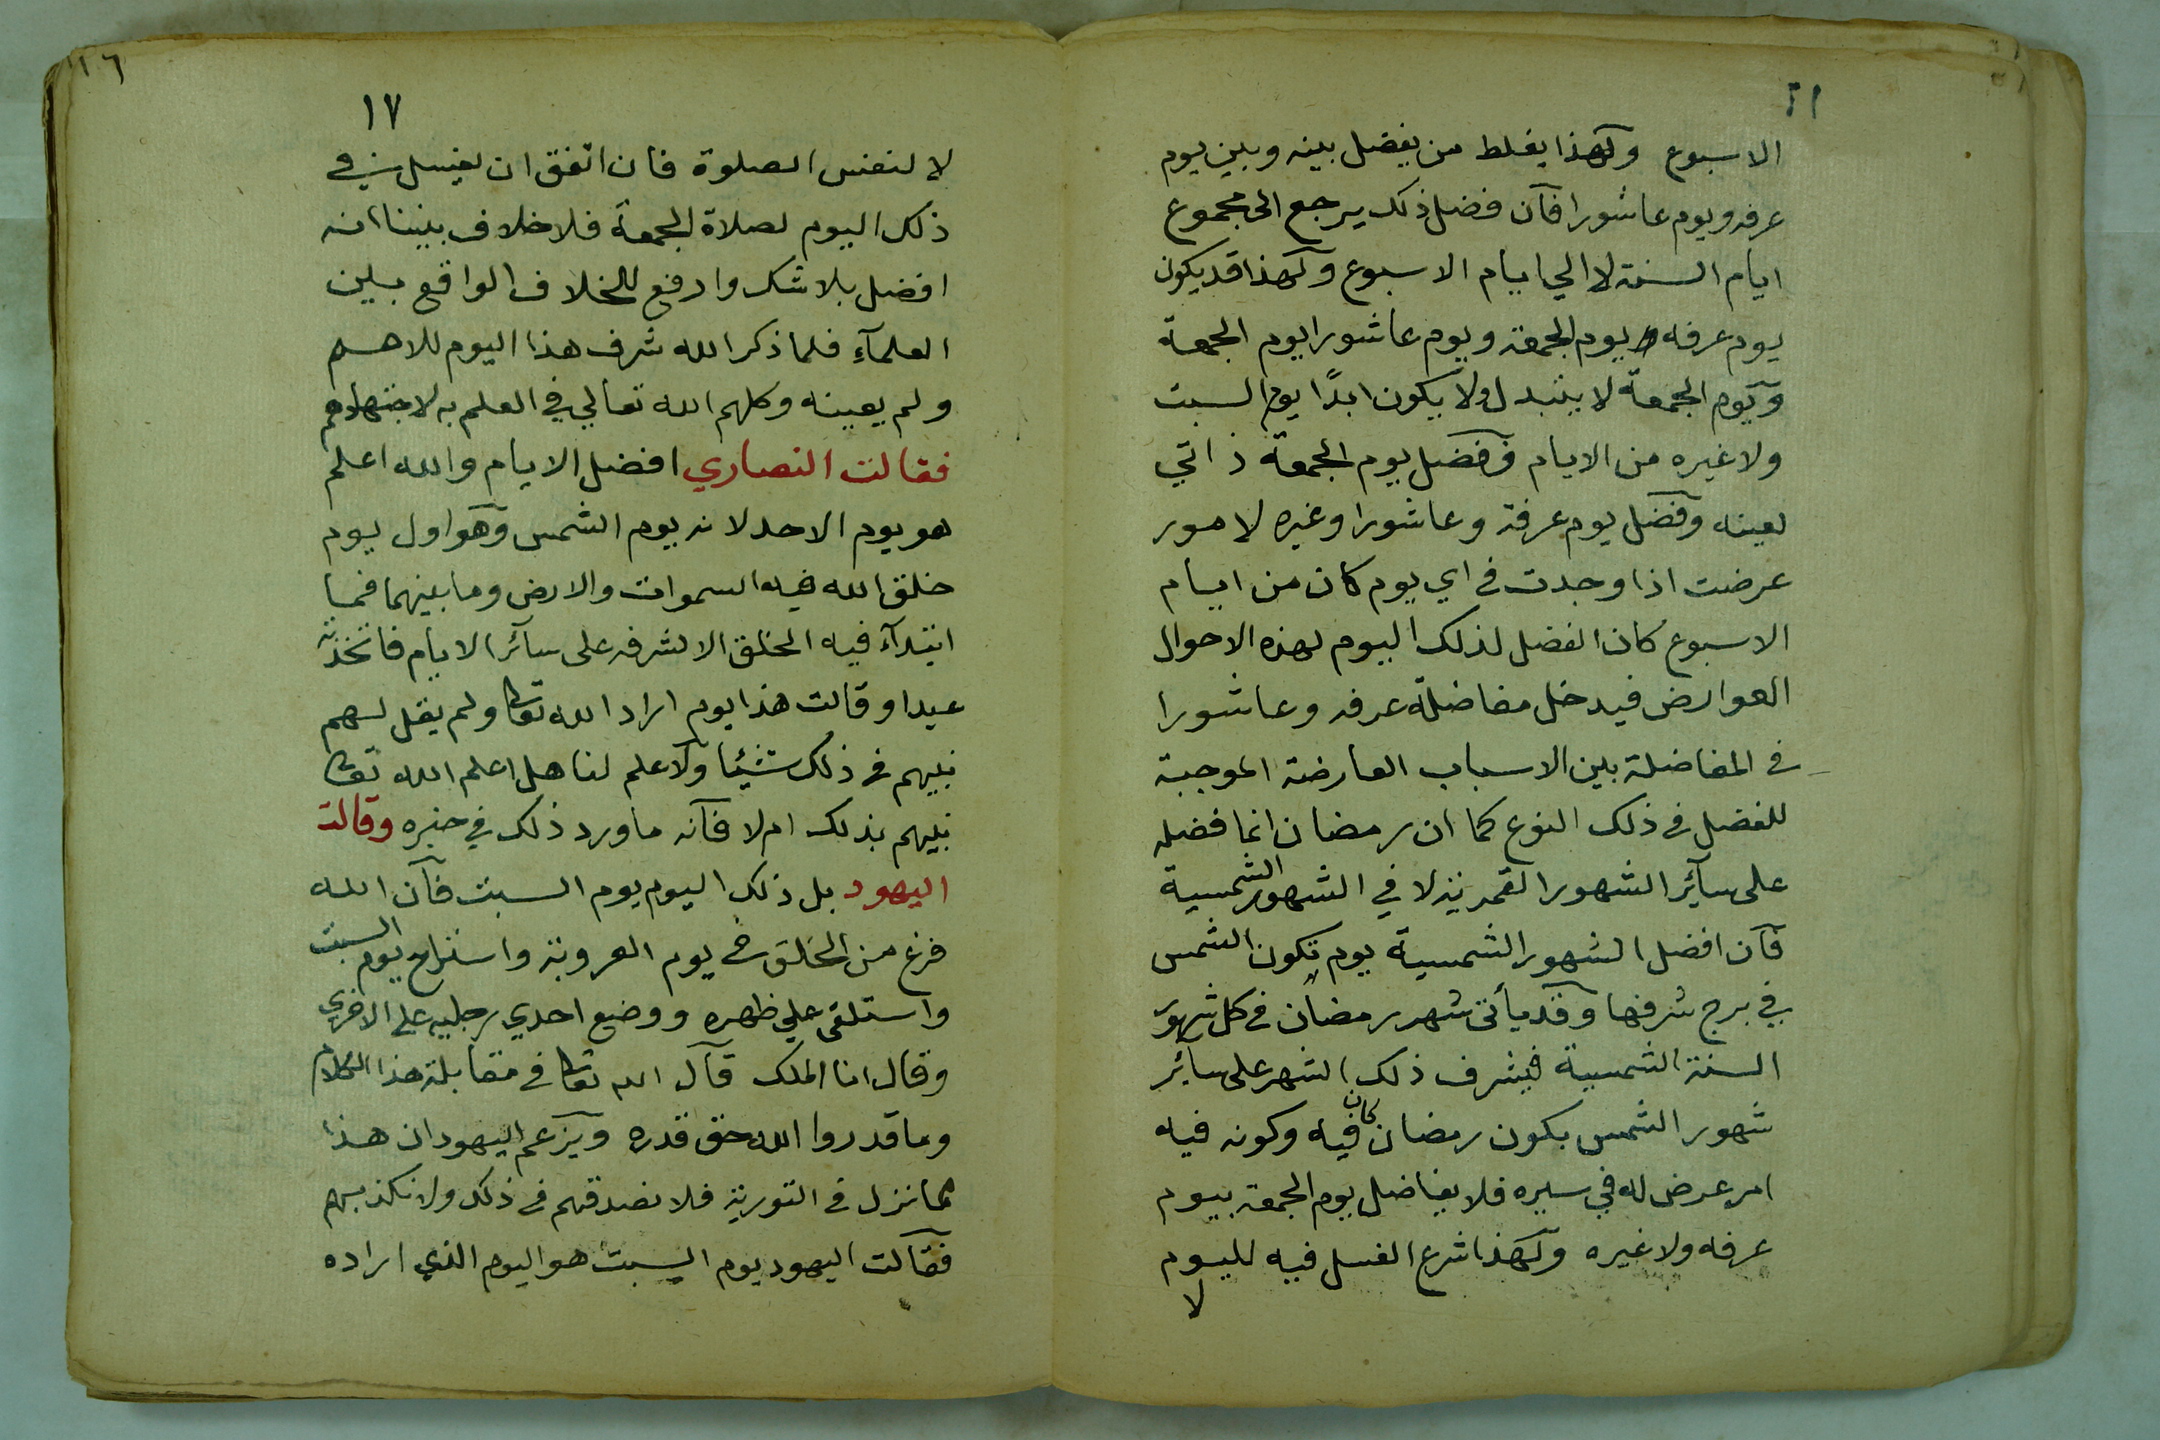 ١٦
الاسبوع ولهذا يغلط من يفضل بينه وبين يوم
عرفه ويوم عاشورا فان فضل ذلك يرجع الى مجموع
ايام السنة لا الي ايام الاسبوع ولهذا قد يكون
يوم عرفه يوم الجمعة ويوم عاشورا يوم الجمعة
ويوم الجمعة لا يتبدل ولا يكون ابدًا يوم السبت
ولا غيره من الايام ففضل يوم الجمعة ذاتي
لعينه وفضل يوم عرفة وعاشورا وغيره لامور
عرضت اذا وجدت في اي يوم كان من ايام
الاسبوع كان الفضل لذلك اليوم لهذه الاحوال
العوارض فيدخل مفاضلة عرفه وعاشورا
في المفاضلة بين الاسباب العارضة الموجبة
للفضل في ذلك النوع كما ان رمضان انما فضله
على سآئر الشهور القمرية لا في الشهور الشمسية
فان افضل الشهور الشمسية يوم تكون الشمس
في برج شرفها وقد يأتى شهر رمضان في كل شهور
السنة الشمسية فيشرف ذلك الشهر على سائر
شهور الشمس بكون رمضان كان فيه وكونه فيه
امر عرض له في سيره فلا يفاضل يوم الجمعة بيوم
عرفه ولا غيره ولهذا شرع الغسل فيه لليوم
لا
١٦
١٧
لا لنفس الصلوة فان اتفق ان يغسل في
ذلك اليوم لصلاة الجمعة فلا خلاف بيننا انه
افضل بلا شك وارفع للخلاف الواقع بين
العلمآء فلما ذكر الله شرف هذا اليوم للامم
ولم يعينه وكلهم الله تعالي في العلم به لاجتهادهم
فقالت النصاري افضل الايام والله اعلم
هو يوم الاحد لانه يوم الشمس وهو اول يوم
خلق الله فيه السموات والارض وما بينهما فما
ابتدآء فيه الخلق الا لشرفه على سآئر الايام فاتخذته
عيدا وقالت هذا يوم اراد الله تعا ولم يقل لهم
نبيهم في ذلك شيئا ولا علم لنا هل اعلم الله تعا
نبيهم بذلك ام لا فانه ما ورد ذلك في خبره وقالت
اليهود بل ذلك اليوم يوم السبت فان الله
فرغ من الخلق في يوم العروبة واستراح يوم السبت
واستلقى علي ظهره ووضع احدي رجليه على الاخري
وقال انا الملك قال الله تعا في مقابلة هذا الكلام
وما قدروا الله حق قدره ويزعم اليهود ان هذا
مما نزل في التورية فلا نصدقهم في ذلك ولا نكذبهم
فقالت اليهود يوم السبت هو اليوم الذي اراده